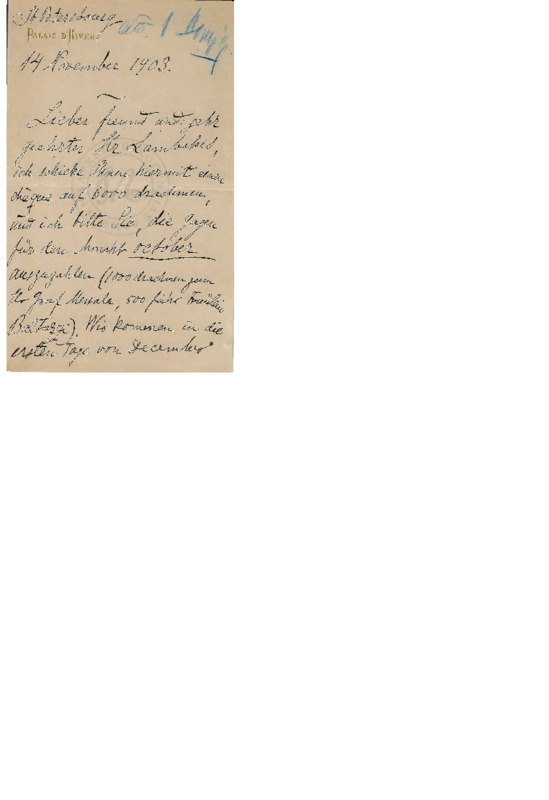 St Petersbourg
PALAIS D'HIVER
14 November 1903.
Lieber freund und sehr
geehrter Hr Lambakis,
ich schicke Ihnen hiermit einen
cheque auf 6000 drachmen,
und ich bitte Sie, die gagen
für den Monat october
auszuzahlen (1000 drachmen zum
Hr Graf Mercati, 500 führ Fräulein
Baltazzi). Wir kommen in die
ersten Tage von December